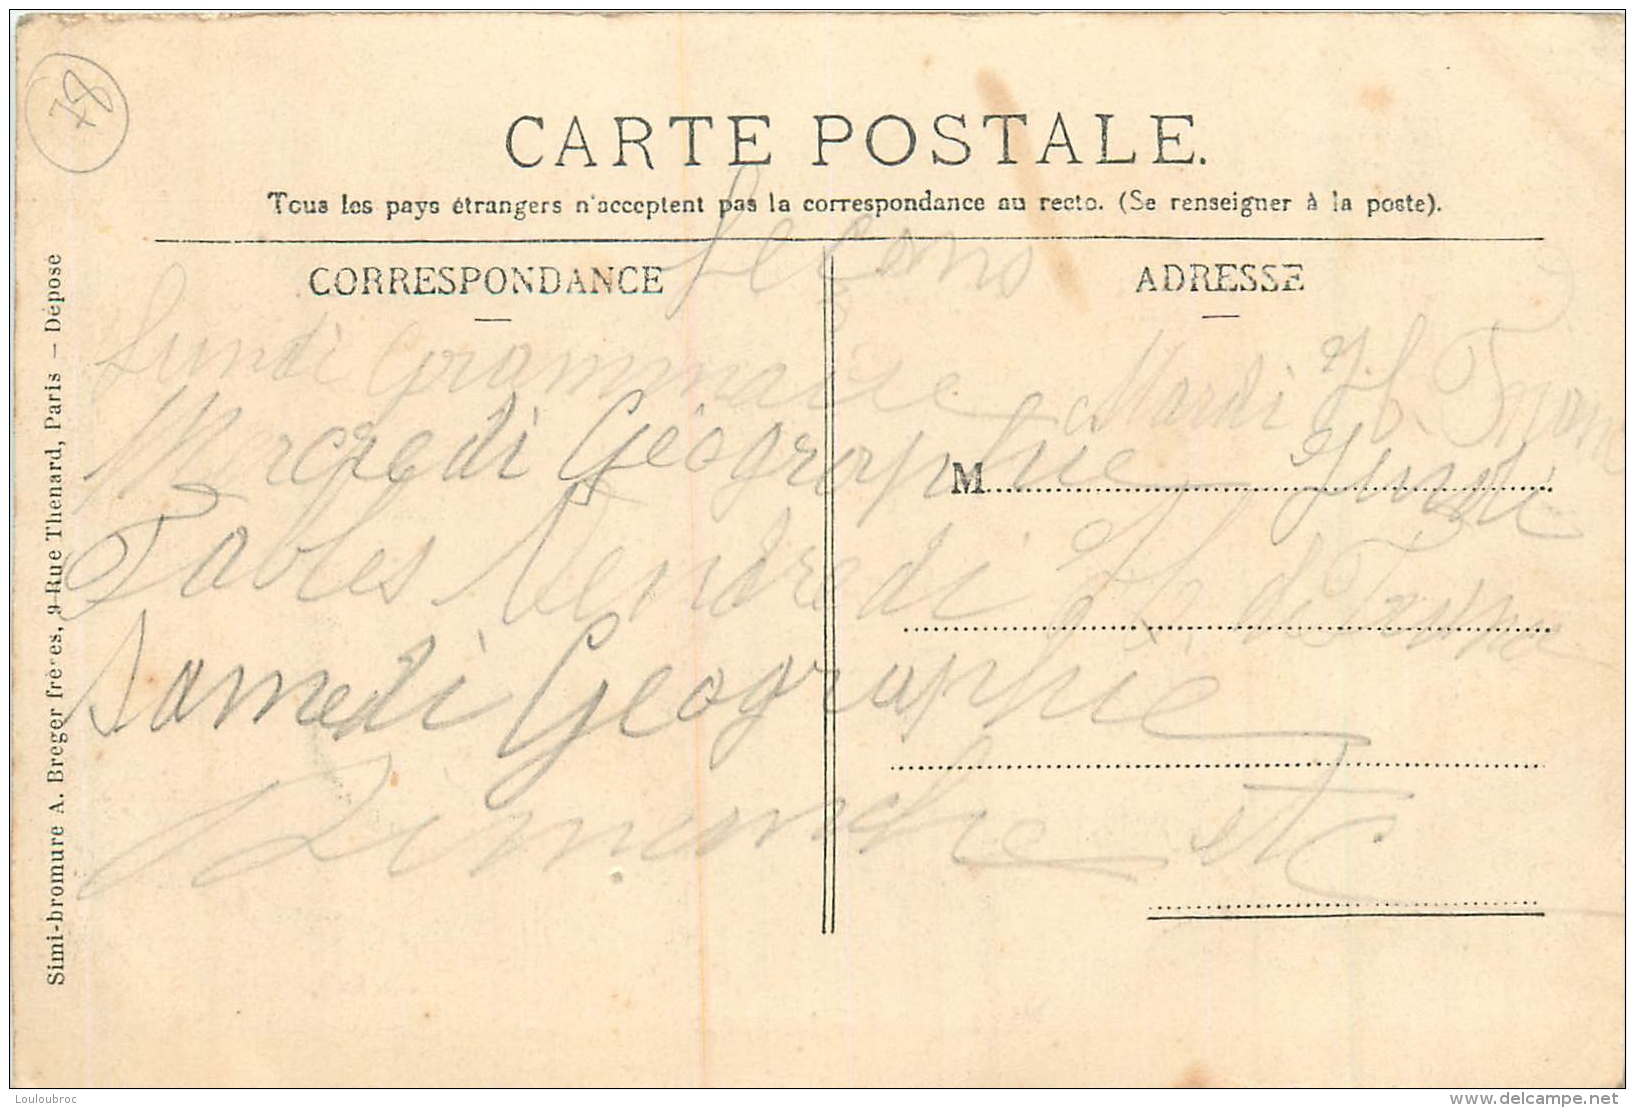 78
CARTE POSTALE.
Tous les pays étrangers n'acceptent pas la correspondance au recto. (Se renseigner à la poste).
CORRESPONDANCE
ADRESSE
Leçons
Lundi Grammaire Mardi H. Franc
Mercredi Géographie Jeudi
M
Tables Vendredi H. de France
Samedi Géographie
Dimanche etc
Simi-bromure A. Breger frères, 9 Rue Thenard, Paris — Déposé
Louloubroc
www.delcampe.net